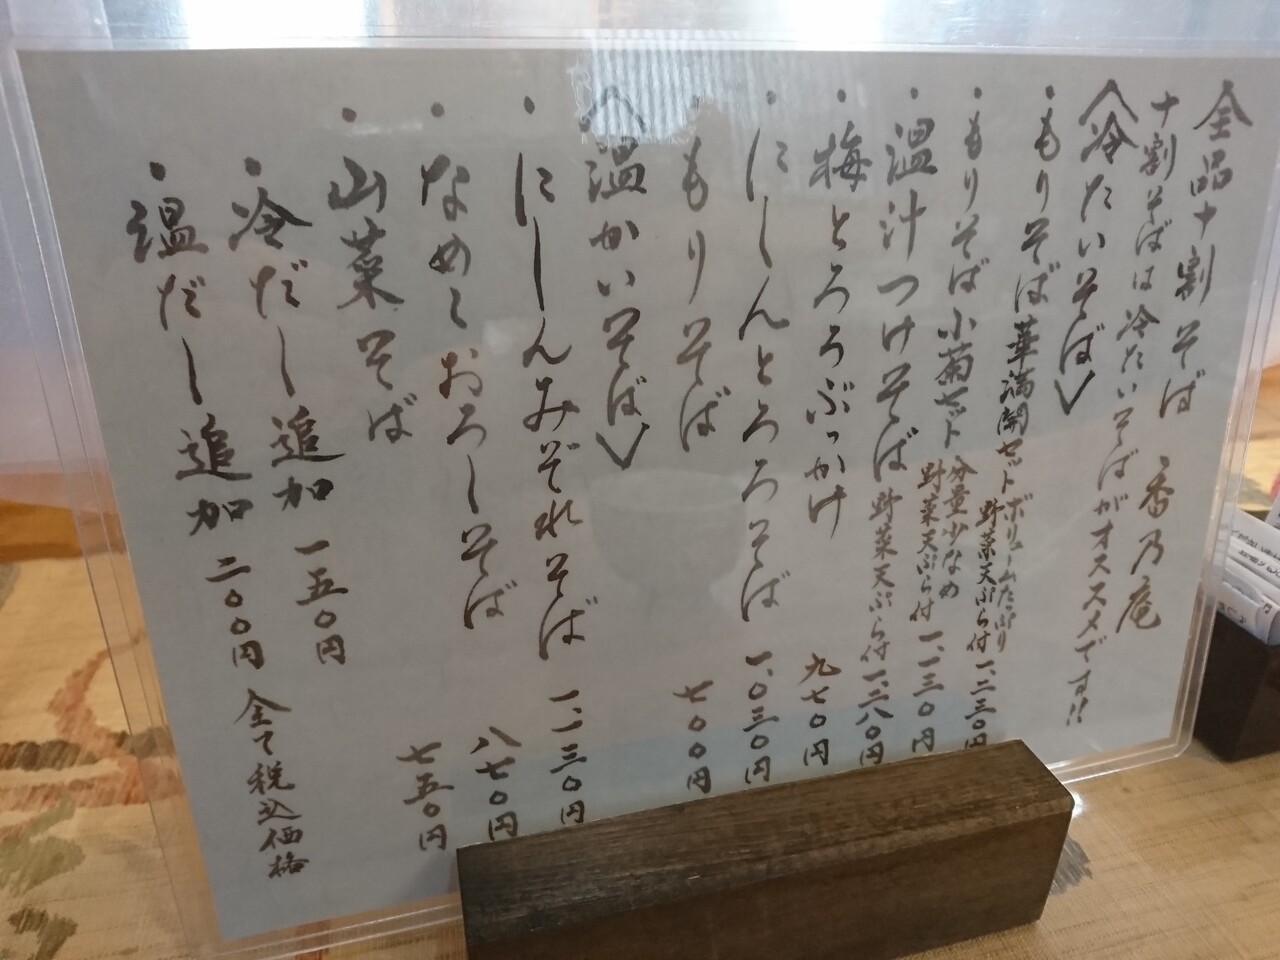 全品十割そば 香乃庵
十割そばは冷たいそばがオススメです!!
〈冷たいそば〉
・もりそば華満開セット ボリュームたっぷり 野菜天ぷら付 一、三三〇円
・もりそば小菊セット 分量少なめ 野菜天ぷら付 一、一三〇円
・温汁つけそば 野菜天ぷら付 一、三八〇円
・梅とろろぶっかけ 九七〇円
・にしんとろろそば 一、〇三〇円
・もりそば 七〇〇円
〈温かいそば〉
・にしんみぞれそば 一、一三〇円
・なめこおろしそば 八七〇円
・山菜そば 七五〇円
・冷だし追加 一五〇円
・温だし追加 二〇〇円
全て税込価格